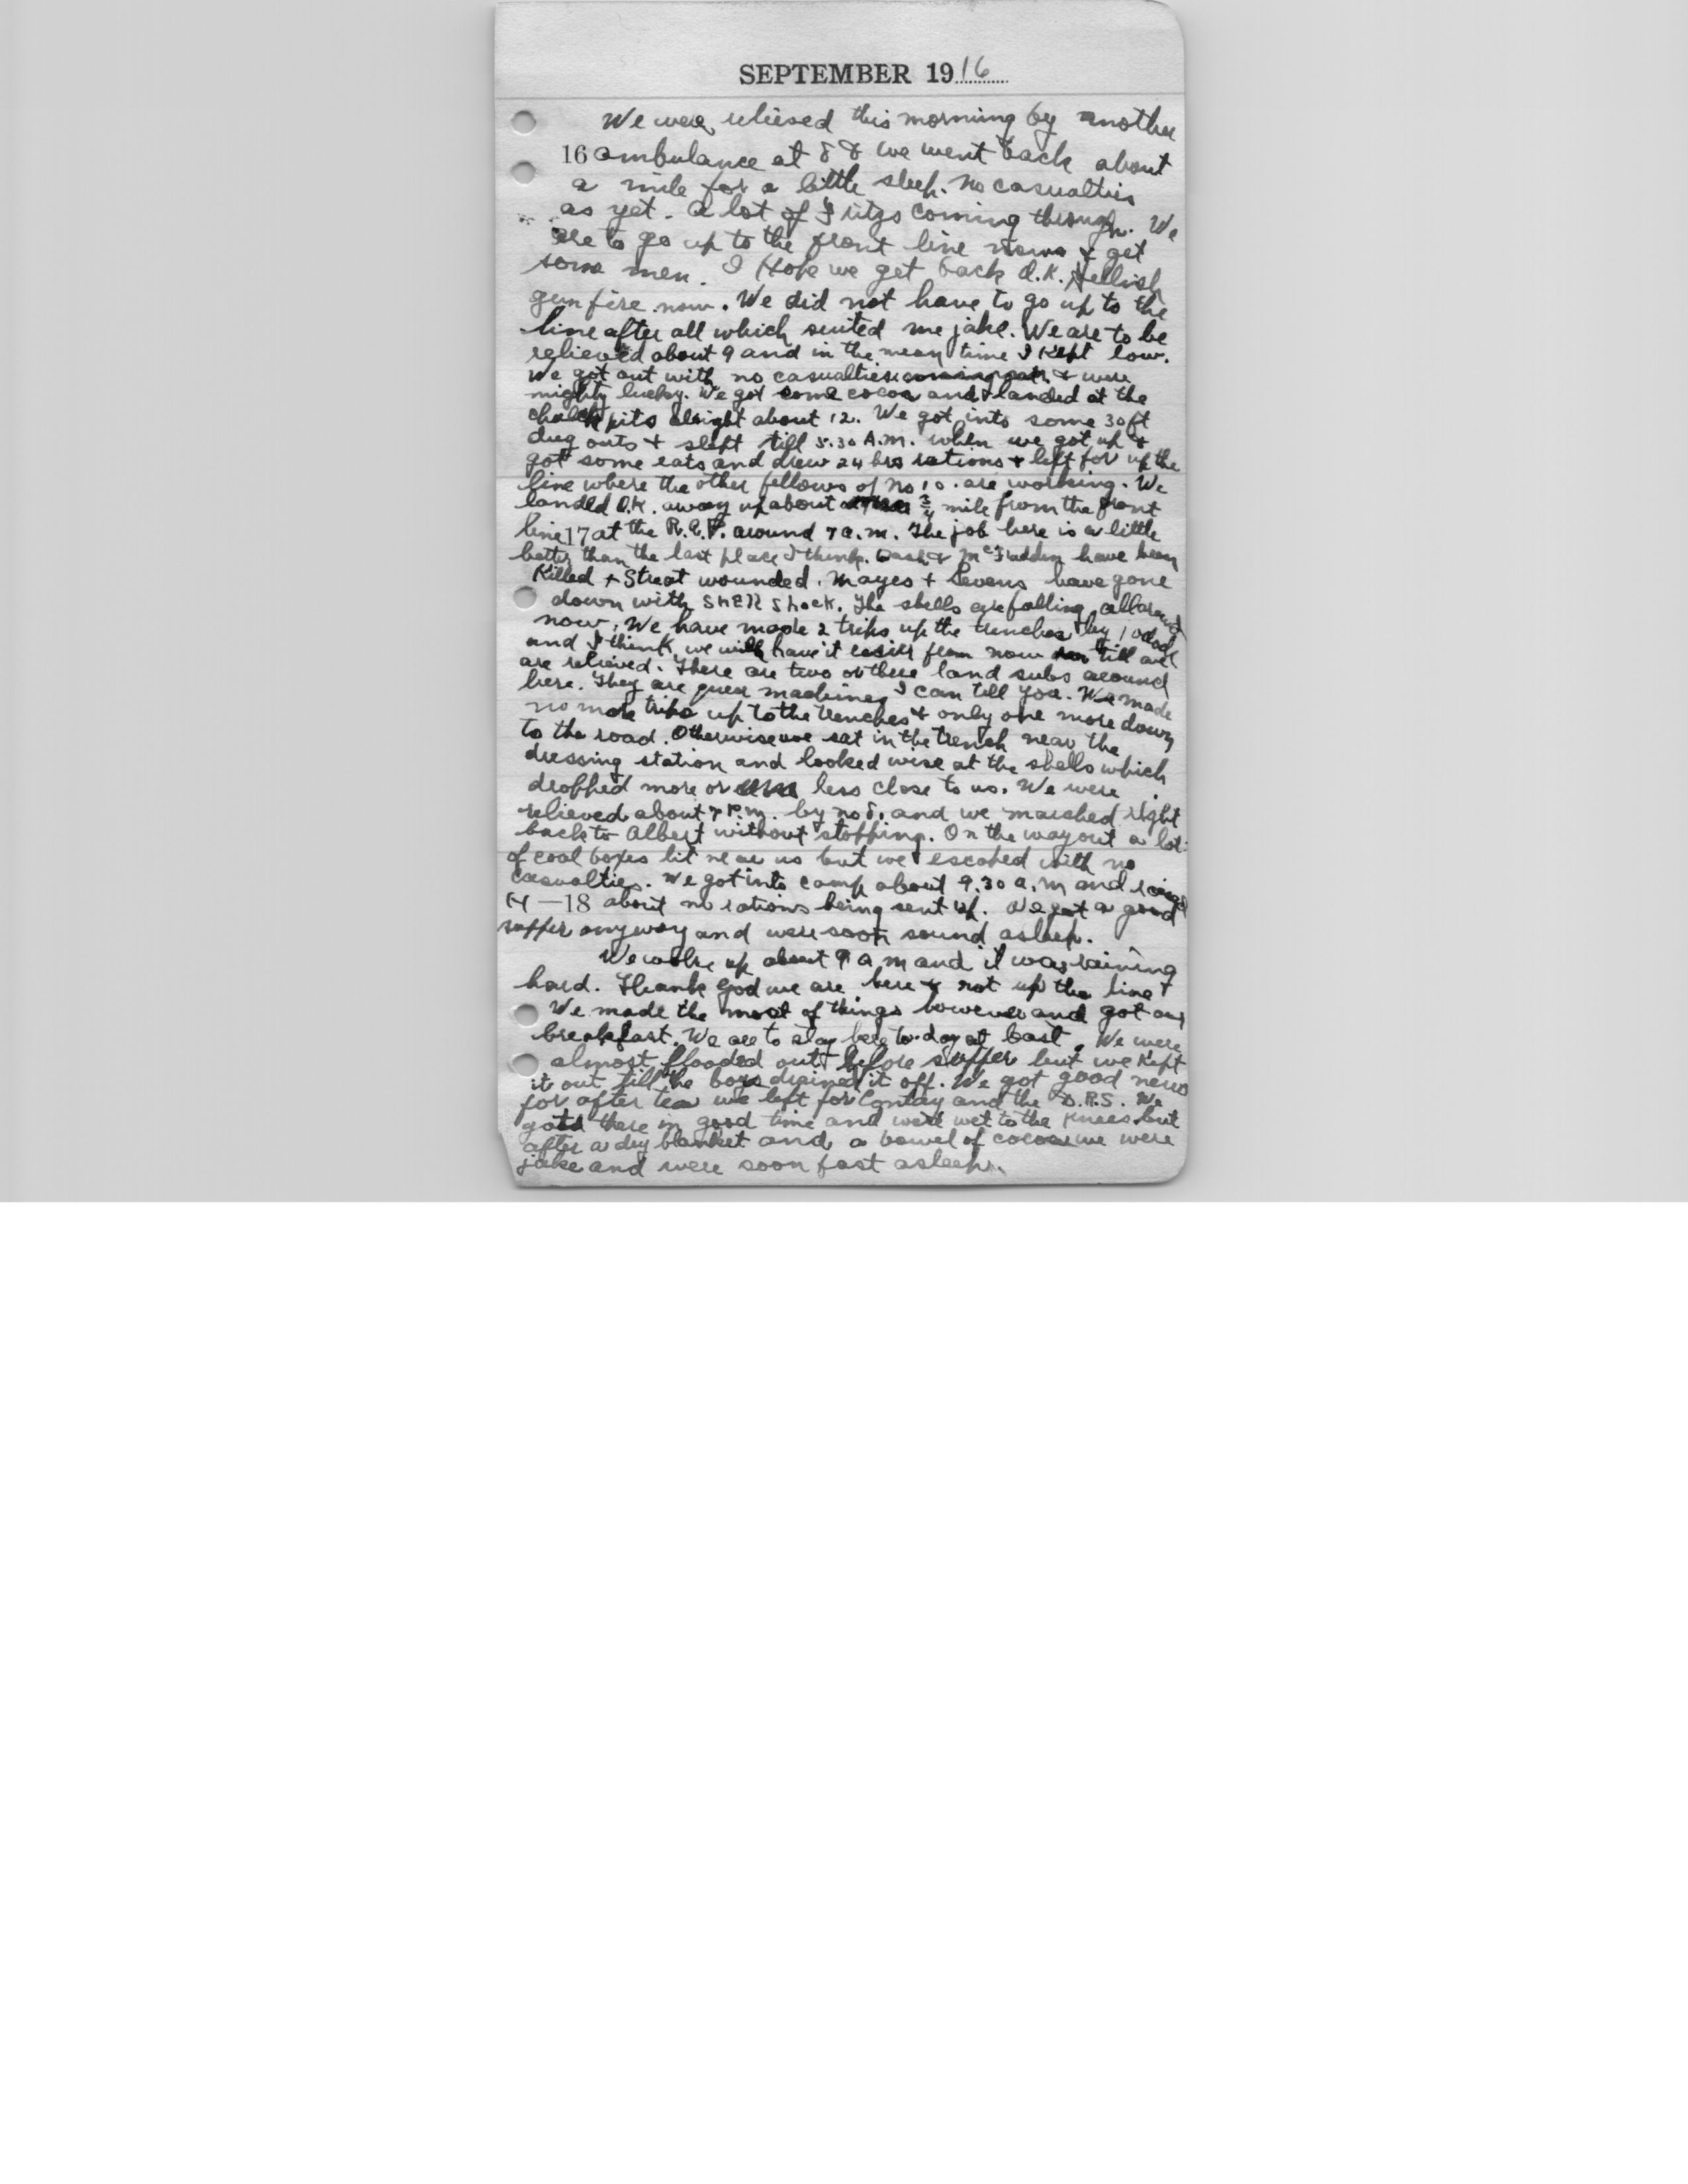 SEPTEMBER 1916
We were relieved this morning by another
16 ambulance at 8 & we went back about
a mile for a little sleep. No casualties
as yet. A lot of Fritzs coming through. We
are to go up to the front line now & get
some men. I Hope we get back O.K. Hellish
gun fire now. We did not have to go up to the
line after all which suited me jake. We are to be
relieved about 9 and in the mean time I Kept low.
We got out with no casualties & were
mighty lucky. We got some cocoa and landed at the
chalk pits alright about 12. We got into some 30ft
dug outs & slept till 5.30 A.M. when we got up &
got some eats and drew 24 hrs rations & left for up the
line where the other fellows of No 10. are working. We
landed O.K. away up about 3/4 mile from the front
line 17 at the R.A.P. around 7 a.m. The job here is a little
better than the last place I think. & McFadden have been
Killed & Streat wounded. Mayes & Sevens have gone
down with SHELL Shock. The shells are falling all around
now. We have made 2 trips up the trenches by 1 oclock
and I think we will have it easier from now till we
are relieved. There are two or three land subs around
here. They are queer machines I can tell you. We made
no more trips up to the trenches & only one more down
to the road. Otherwise we sat in the trench near the
dressing station and looked wise at the shells which
dropped more or less close to us. We were
relieved about 7 P.m. by no 8. and we marched right
back to Albert without stopping. On the way out a lot
of coal boxes lit near us but we escaped with no
casualties. We got into camp about 9.30 a.m and
H—18 about no rations being sent up. We got a good
supper anyway and were soon sound asleep.
We woke up about 9 a m and it was raining
hard. Thank God we are here & not up the line
We made the most of things however and got our
breakfast. We are to stay here to-day at least. We were
almost flooded out before supper but we Kept
it out till the boys drained it off. We got good news
for after tea we left for Contay and the D.R.S. We
got there in good time and were wet to the knees but
after a dry blanket and a bowel of cocoa we were
jake and were soon fast asleep.